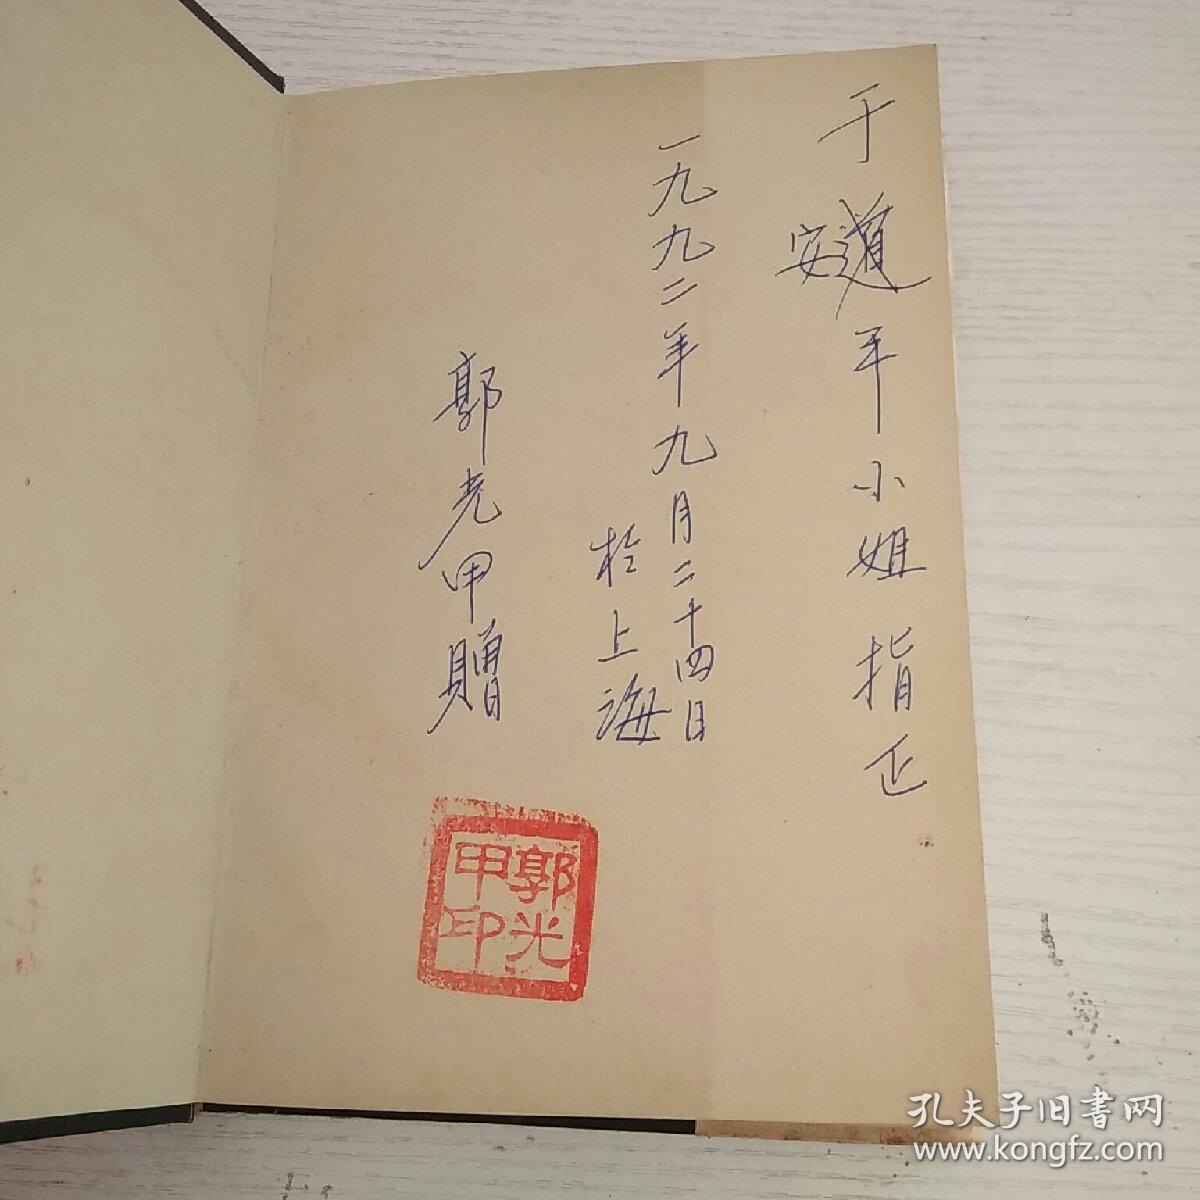 于安平小姐指正
一九九二年九月二十四日
於上海
郭光甲贈
郭光甲印
孔夫子旧書网
www.kongfz.com